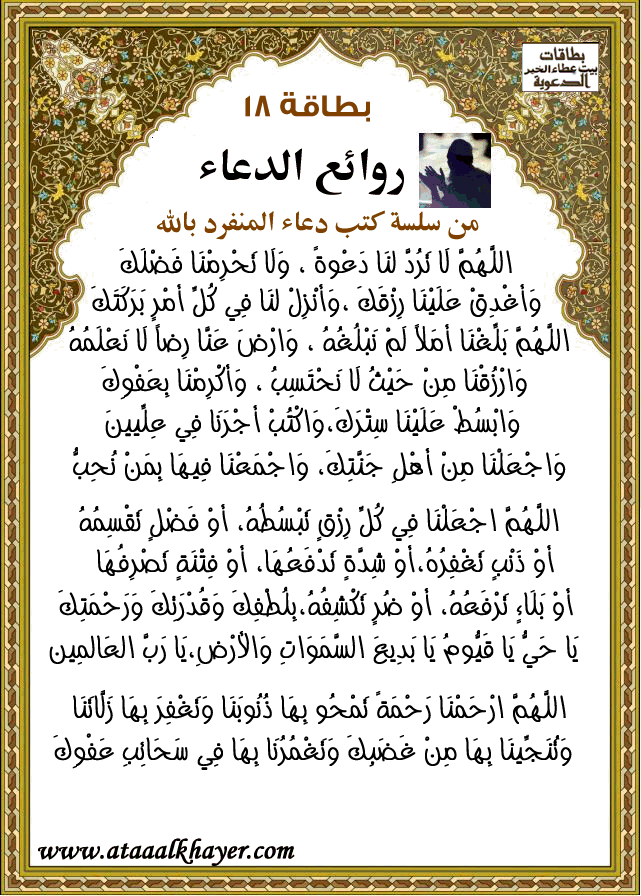 بطاقات
بيت عطاء الخير
الدعوية
بطاقة ١٨
روائع الدعاء
من سلسة كتب دعاء المنفرد بالله
اللَّهُمَّ لَا تَرُدَّ لنَا دَعْوةً ، وَلَا تَحْرِمْنَا فَضْلَكَ
وَأغْدِقْ عَلَيْنَا رِزْقَكَ ،وَأنْزِلْ لنَا فِي كُلِّ أمْرٍ بَرَكَتَكَ
اللَّهُمَّ بَلِّغْنَا أمَلاً لَمْ نَبْلُغْهُ ، وَارْضَ عَنَّا رِضاً لَا نَعْلَمُهُ
وَارْزُقْنَا مِنْ حَيْثُ لَا نَحْتَسِبُ ، وَأكْرِمْنَا بِعَفْوِكَ
وَابْسُطْ عَلَيْنَا سِتْرَكَ،وَاكْتُبْ أجْرَنَا فِي عِلِّيينَ
وَاجْعَلْنَا مِنْ أهْلِ جَنَّتِكَ، وَاجْمَعْنَا فِيهَا بِمَنْ نُحِبُّ
اللَّهُمَّ اجْعَلْنَا فِي كُلِّ رِزْقٍ تَبْسُطُهُ، أوْ فَضْلٍ تَقْسِمُهُ
أوْ ذَنْبٍ تَغْفِرُهُ،أوْ شِدَّةٍ تَدْفَعُهَا، أوْ فِتْنَةٍ تَصْرِفُهَا
أوْ بَلَاءٍ تَرْفَعُهُ، أوْ ضُرٍ تَكْشِفُهُ،بِلُطْفِكَ وَقُدْرَتِكَ وَرَحْمَتِكَ
يَا حَيُّ يَا قَيُّومُ يَا بَدِيعَ السَّمَوَاتِ وَالأرْضِ،يَا رَبَّ العَالمِين
اللَّهُمَّ ارْحَمْنَا رَحْمَةً تَمْحُو بِهَا ذُنُوبَنَا وَتَغْفِرَ بِهَا زَلَّاتنَا
وَتُنَجِّينَا بِهَا مِنْ غَضَبِكَ وَتَغْمُرُنَا بِهَا فِي سَحَائِبِ عَفْوِكَ
www.ataaalkhayer.com